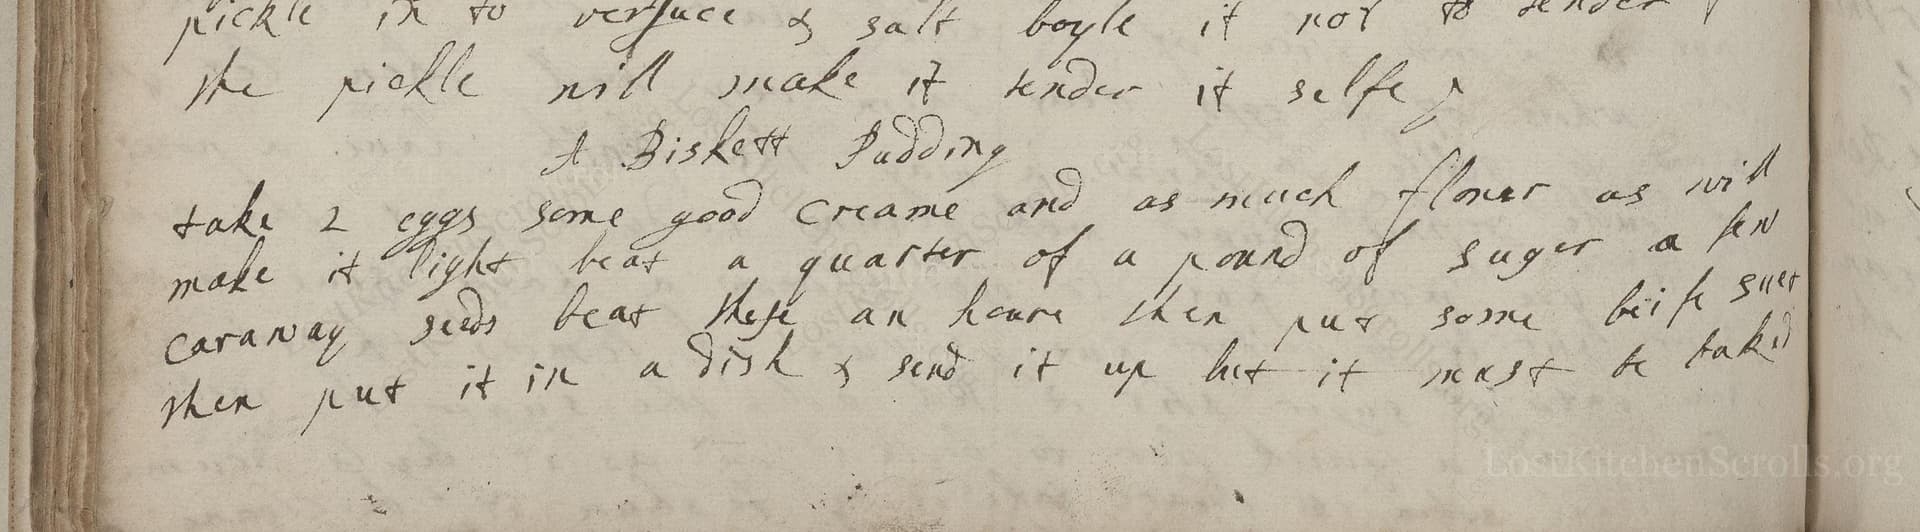 pickle in to verjuce & salt boyle it not to tender
the pickle will make it tender it selfe
A Biskett Pudding
take 2 eggs some good Creame and as much flower as will
make it light beat a quarter of a pound of suger a few
caraway seeds beat these an houre then put some beife suet
then put it in a dish & send it up but it must be baked
LostKitchenScrolls.org